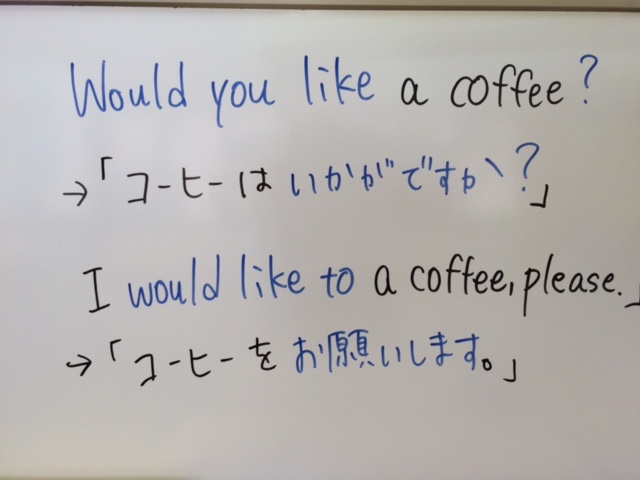 Would you like a coffee?
→「コーヒーはいかがですか?」
I would like to a coffee, please.」
→「コーヒーをお願いします。」